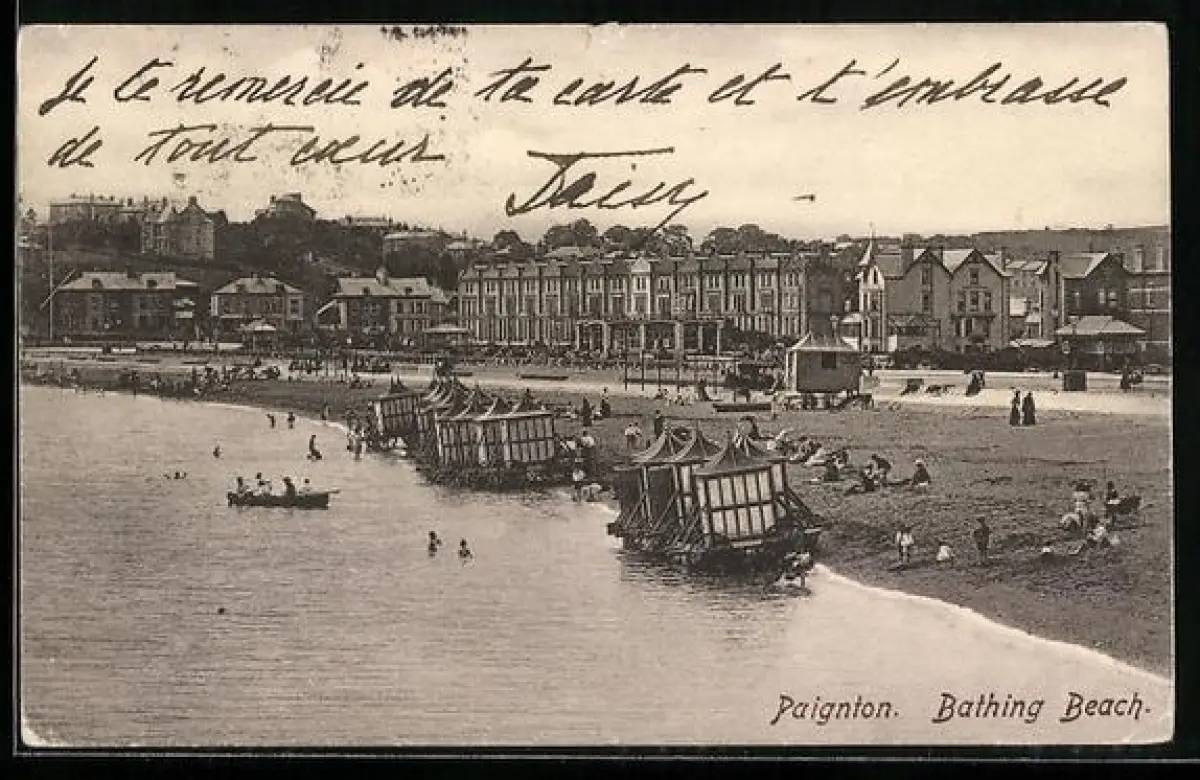 Je te remercie de ta carte et t'embrasse
de tout cœur
Daisy
Paignton. Bathing Beach.